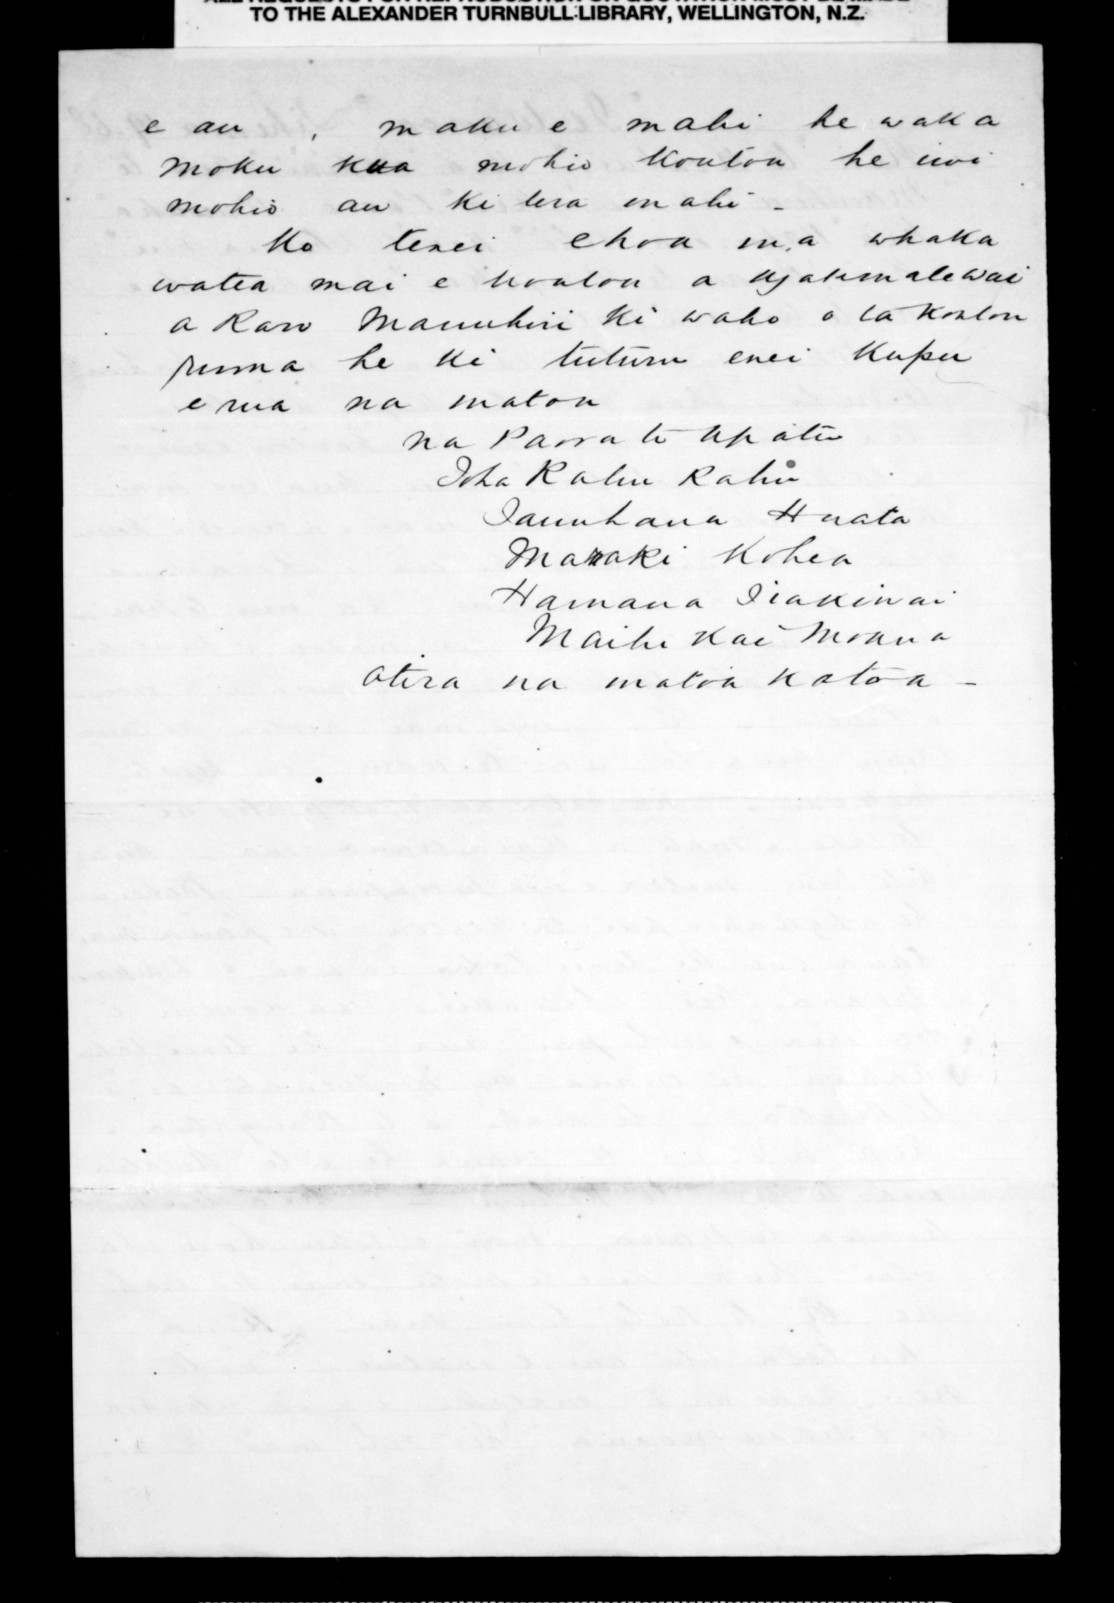 ALL REQUESTS FOR REPRODUCTION OR QUOTATION MUST BE MADE
TO THE ALEXANDER TURNBULL LIBRARY, WELLINGTON, N.Z.
e au, maku e mahi he waka
moku kua mohio koutou he iwi
mohio au ki tera mahi -
Ko tenei ehoa ma whaka
watea mai e koutou a Ngatimatewai
a Rawo Manuhiri ki waho o ta koutou
runa he ki tuturu enei kupu
e rua na matou
na Paora te Apatu
Ioha Kahu Kahu
Tamihana Huata
Maraki Kohea
Hamana Tiakiwai
Maihi Kai Moana
Otira na matou katoa -